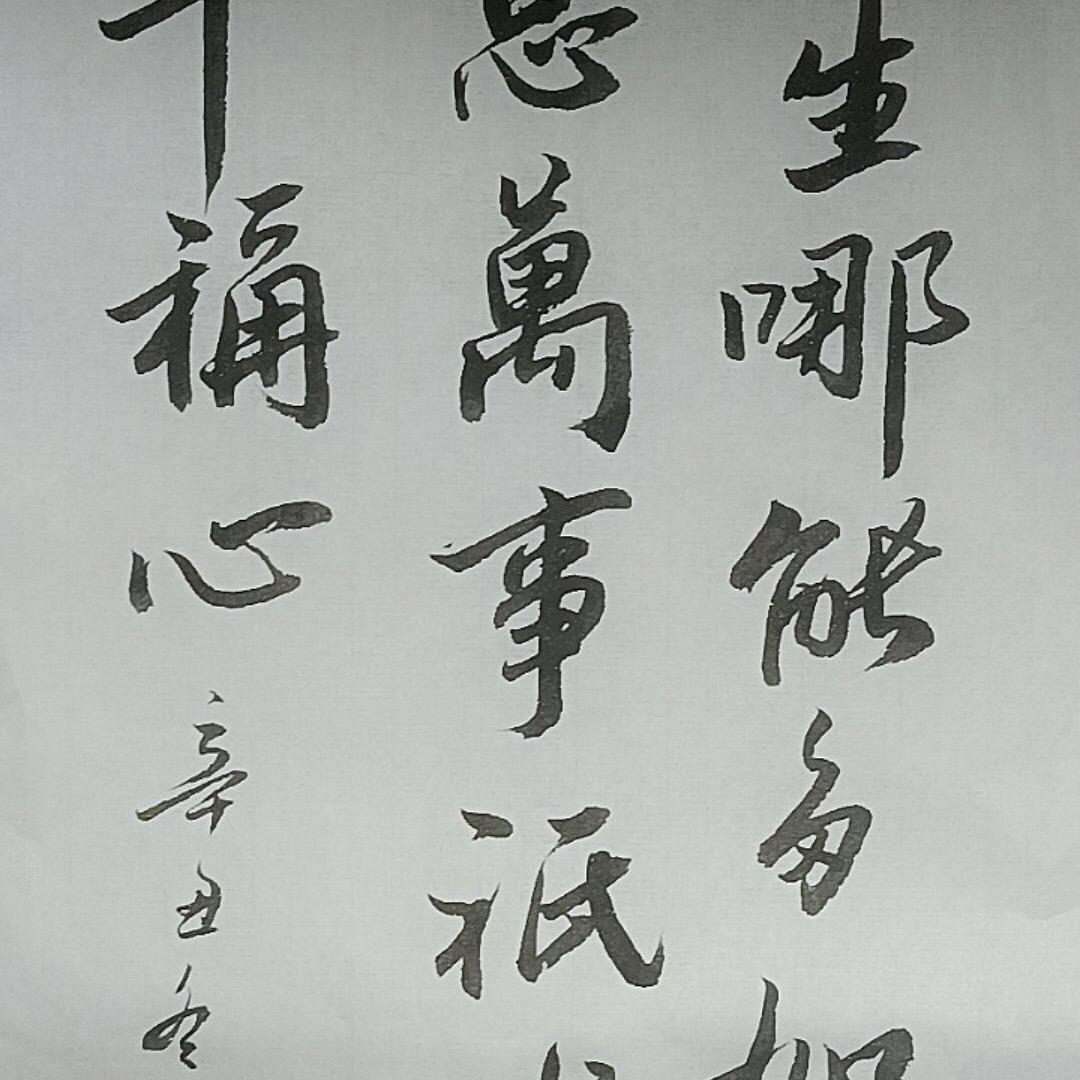 生哪能多如
萬事祇
稱心
辛丑冬